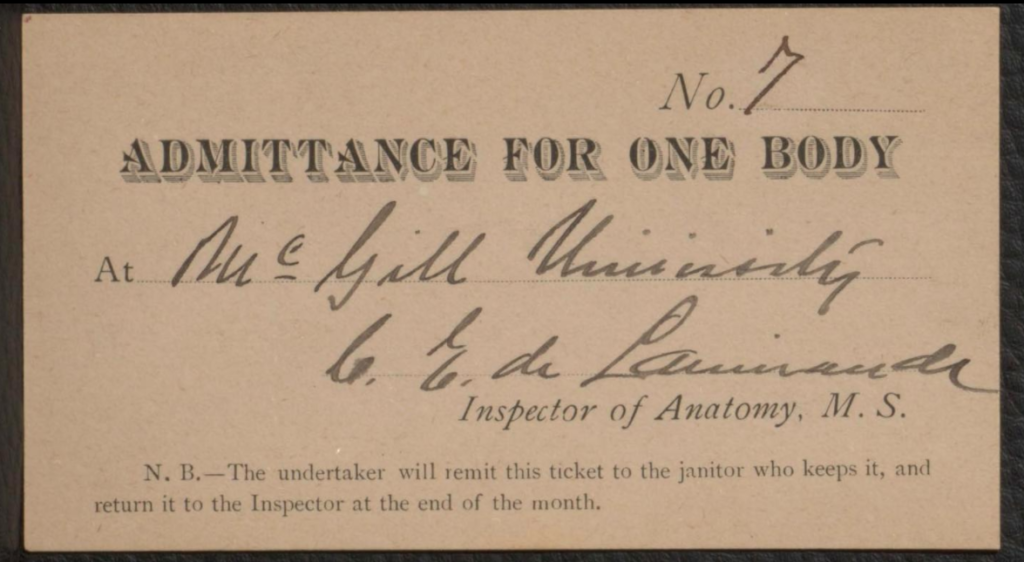 No. 7
ADMITTANCE FOR ONE BODY
At Mc Gill University
C. E. de
Inspector of Anatomy, M. S.
N. B.—The undertaker will remit this ticket to the janitor who keeps it, and
return it to the Inspector at the end of the month.